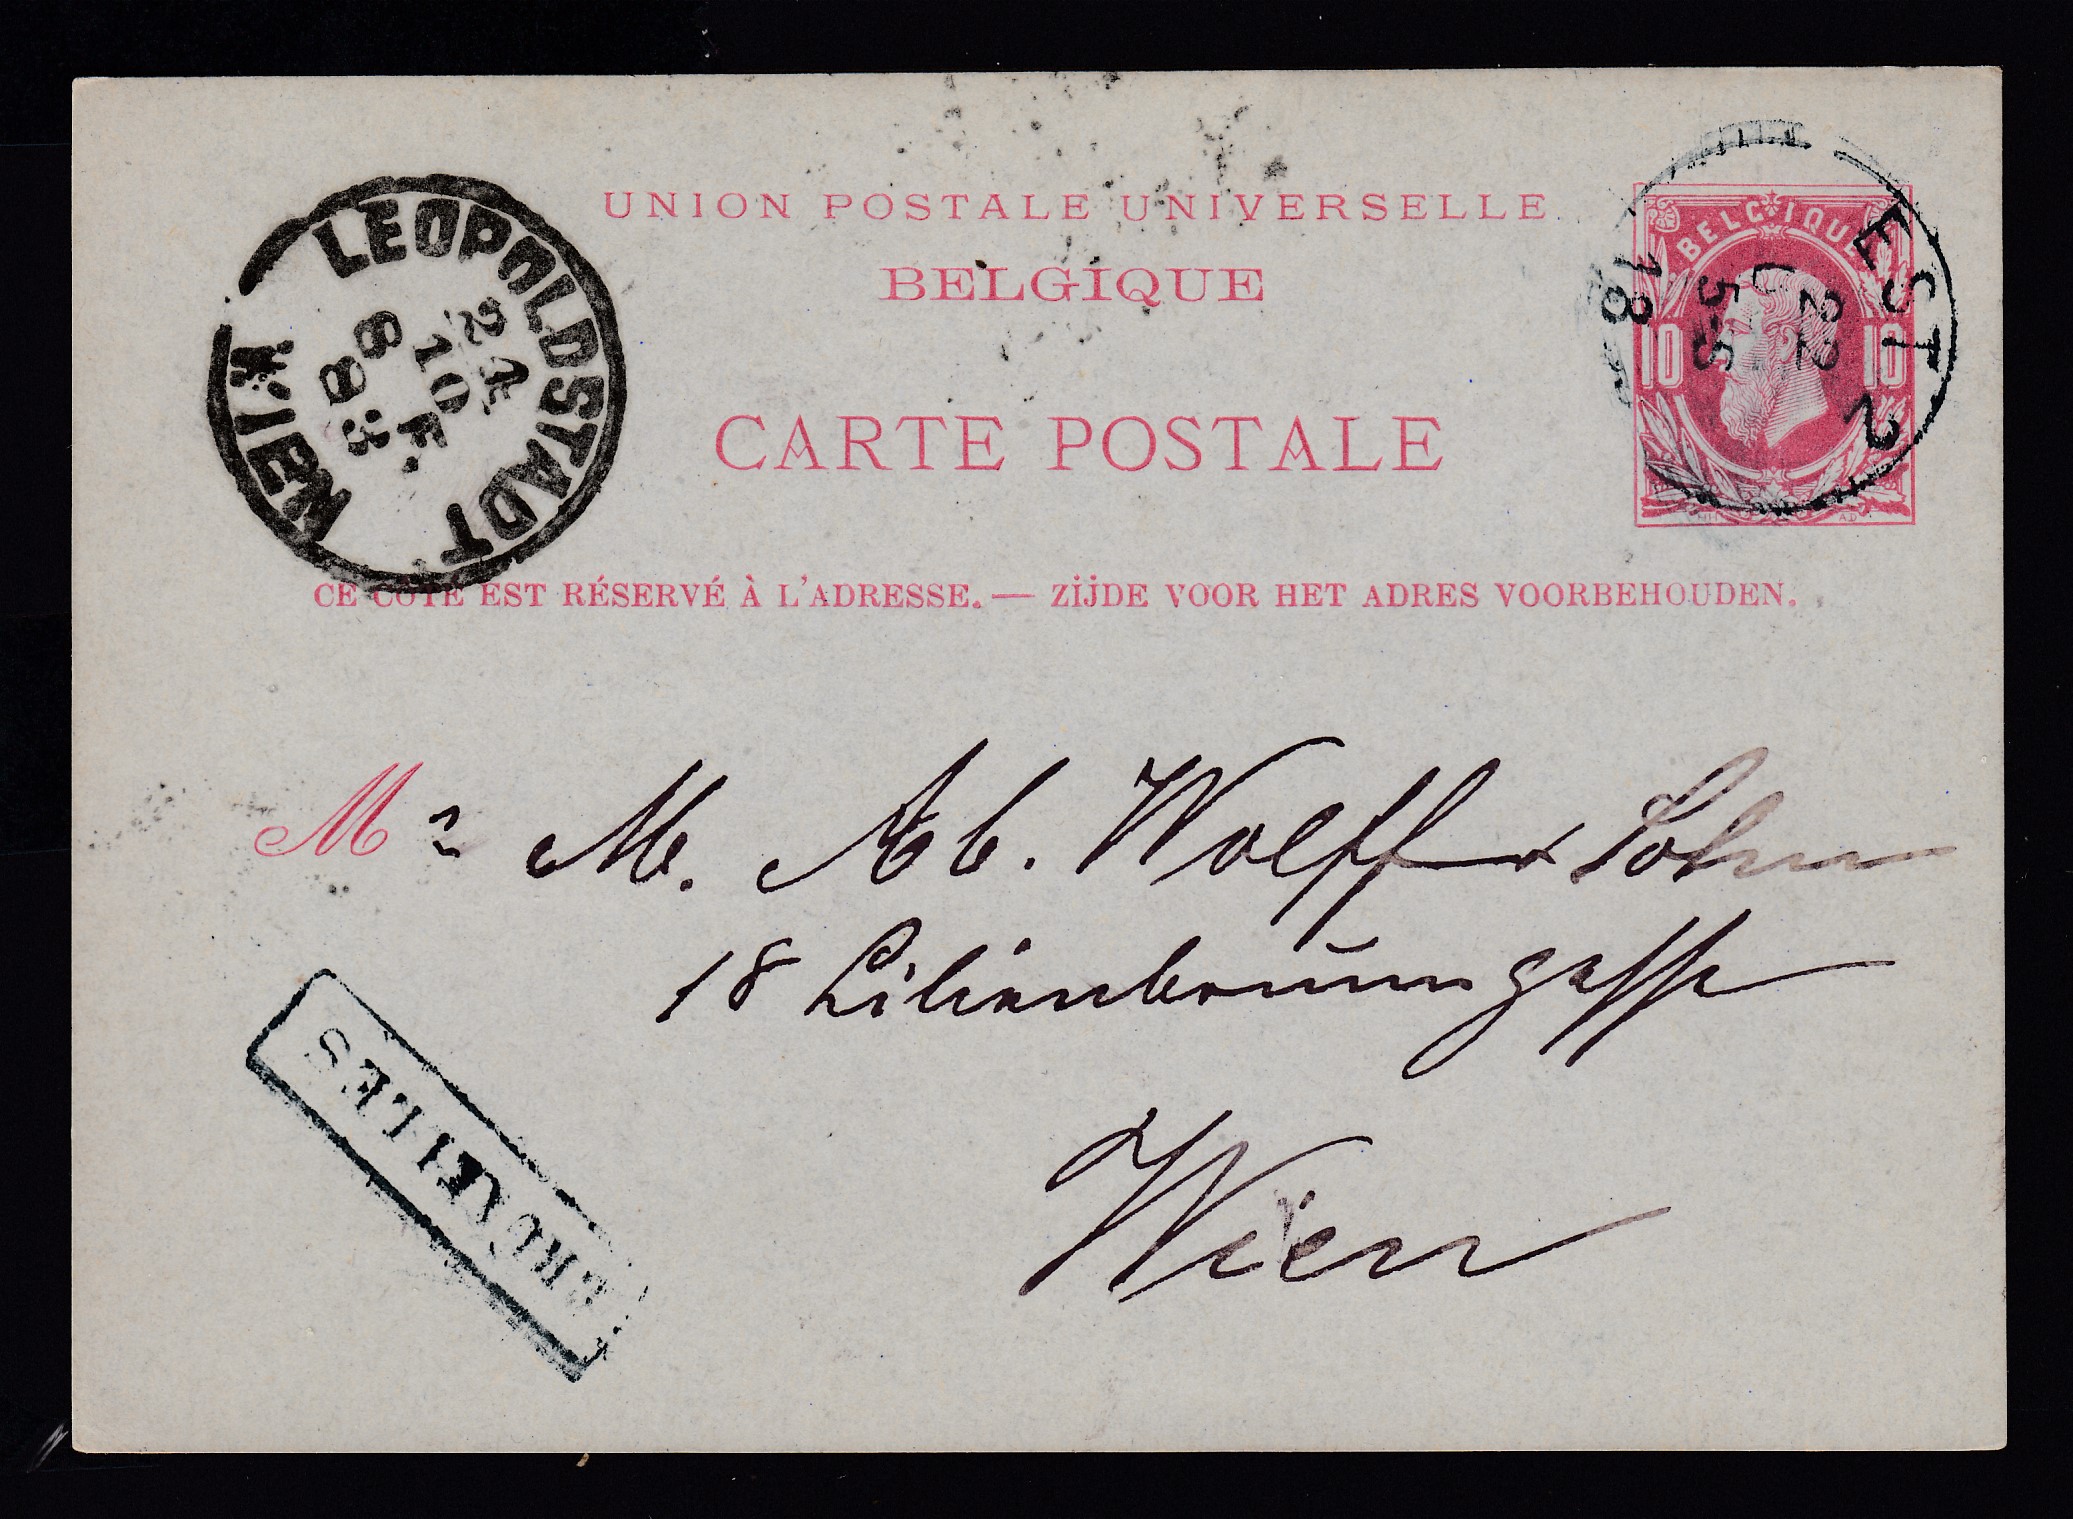 UNION POSTALE UNIVERSELLE
BELGIQUE
CARTE POSTALE
CE CÔTÉ EST RÉSERVÉ À L'ADRESSE. — ZIJDE VOOR HET ADRES VOORBEHOUDEN.
BELGIQUE
10 10
EST 2
22
5-S
18
LEOPOLDSTADT
WIEN
24
10 F.
8 83
M rs M. Ab. Wolff & Sohn
18 Lilienbrunngasse
Wien